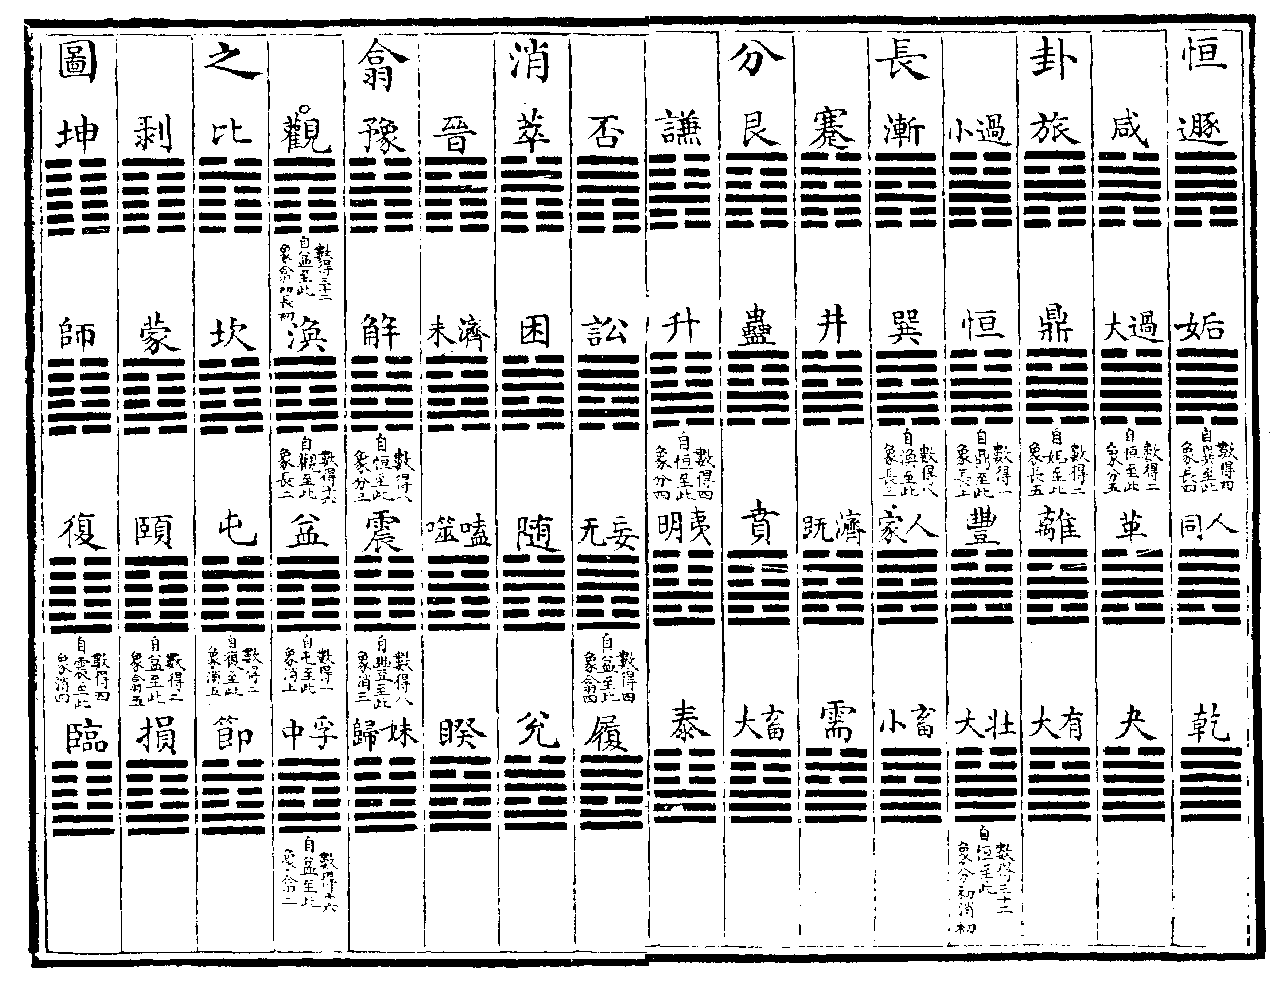 恒卦長分消翕之圖
遯
姤
自巽至此
數得四
象長四
同人
乾
咸
大過
自恒至此
數得二
象分五
革
夬
旅
鼎
自姤至此
數得二
象長五
離
大有
小過
恒
自鼎至此
數得一
象長上
豐
大壯
自恒至此
數得三十二
象分初消初
漸
巽
自渙至此
數得八
象長三
家人
小畜
蹇
井
既濟
需
艮
蠱
賁
大畜
謙
升
自恒至此
數得四
象分四
明夷
泰
否
訟
无妄
自益至此
數得四
象翕四
履
萃
困
随
兌
晉
未濟
噬嗑
睽
豫
解
自恒至此
數得八
象分三
震
自豐至此
數得八
象消三
歸妹
觀
自益至此
數得三十二
象翕初長初
渙
自觀至此
數得十六
象長二
益
自屯至此
數得一
象消上
中孚
自益至此
數得十六
象翕二
比
坎
屯
自復至此
數得二
象消五
節
剥
蒙
頤
自益至此
數得二
象翕五
損
坤
師
復
自震至此
數得四
象消四
臨